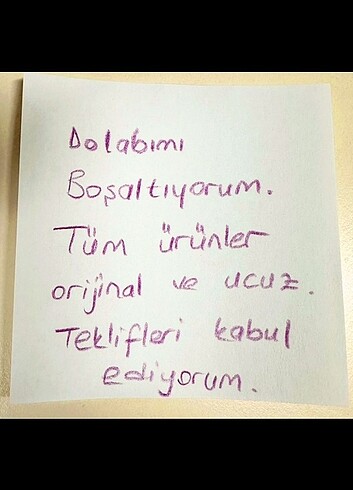 Dolabımı
Boşaltıyorum.
Tüm ürünler
orijinal ve ucuz.
Teklifleri kabul
ediyorum.